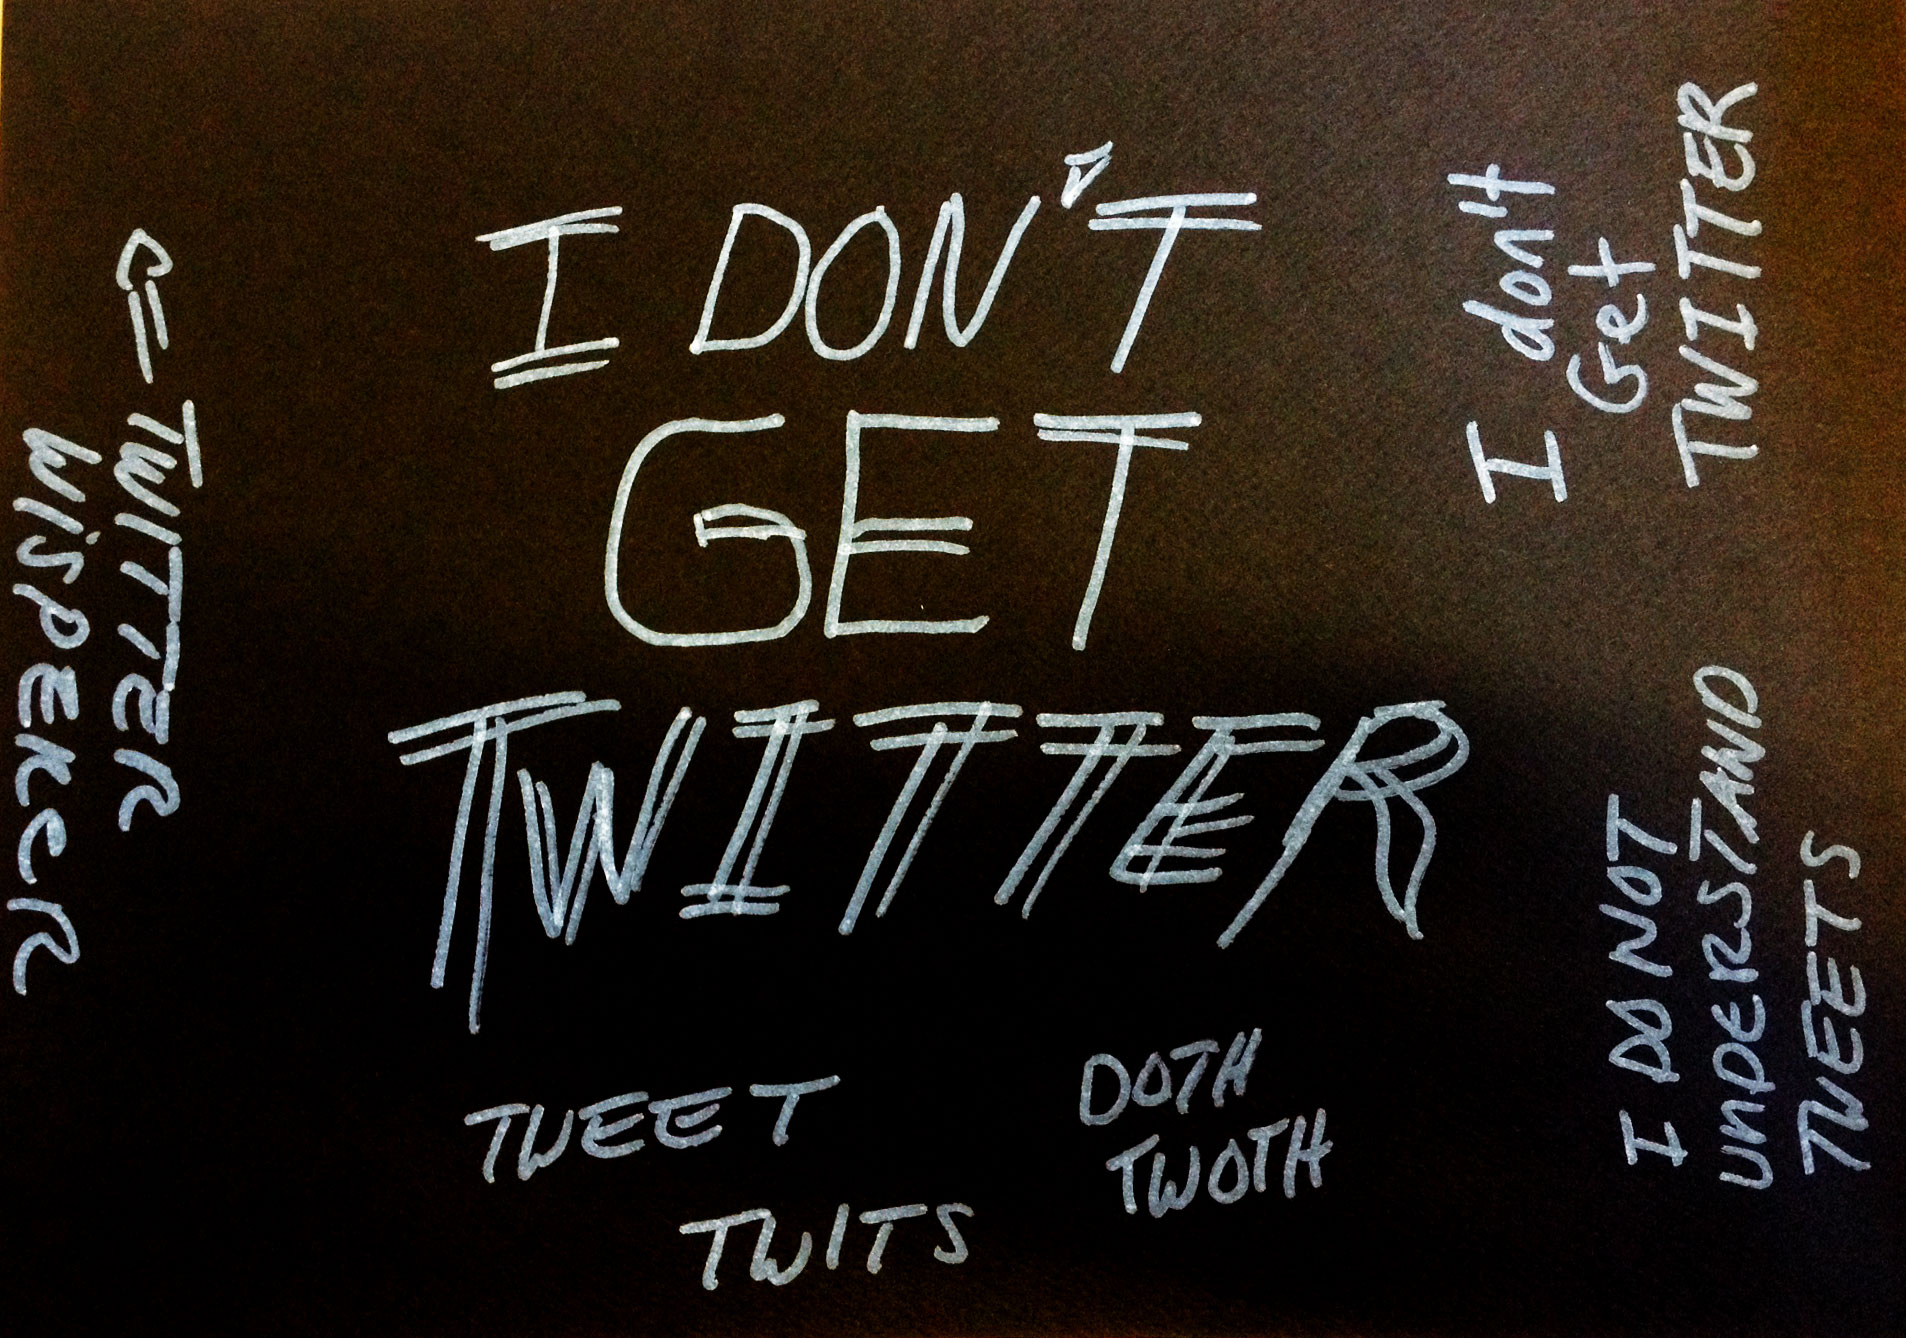 I DON'T
GET
TWITTER
TWEET
TWITS
DOTH
TWOTH
TWITTER
WiSPERER
I don't
Get
TWITTER
I DO NOT
UNDERSTAND
TWEETS